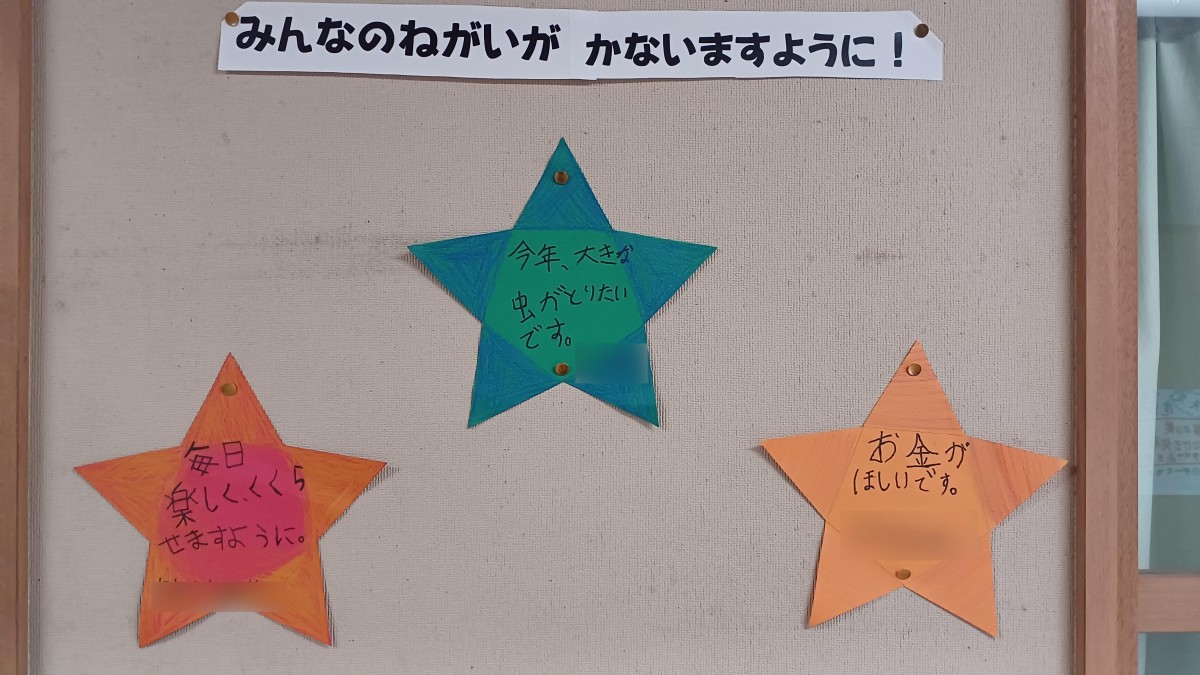 みんなのねがいが かないますように！
今年、大きな
虫がとりたい
です。
毎日
楽しく、くら
せますように。
お金が
ほしいです。